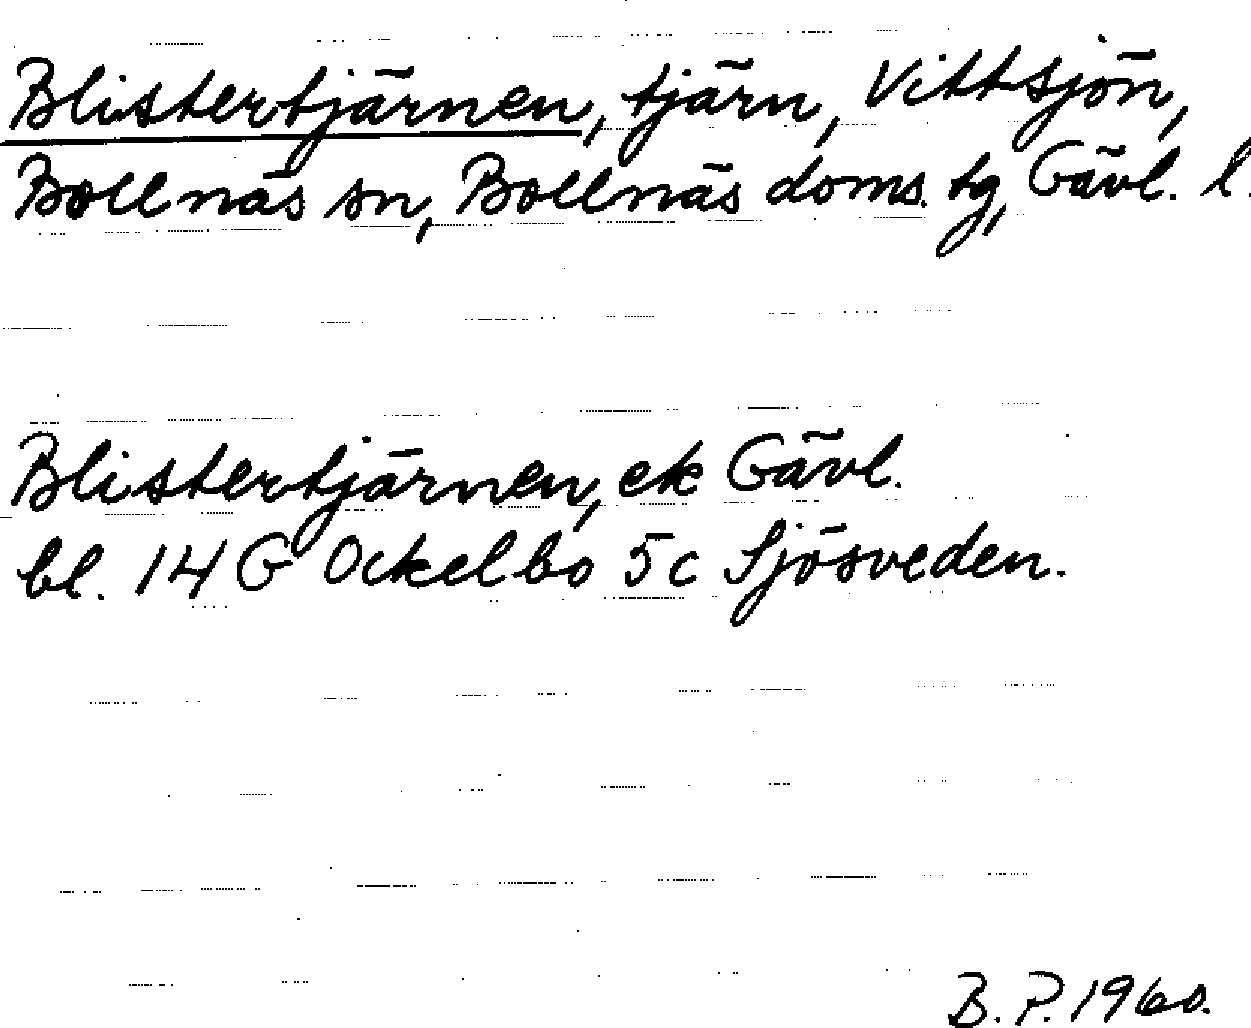 Blistertjärnen, tjärn, Vittsjön,
Bollnäs sn, Bollnäs doms. tg, Gävl. l.
Blistertjärnen, ek Gävl.
bl. 14 G Ockelbo 5c Sjösveden.
B. P. 1960.